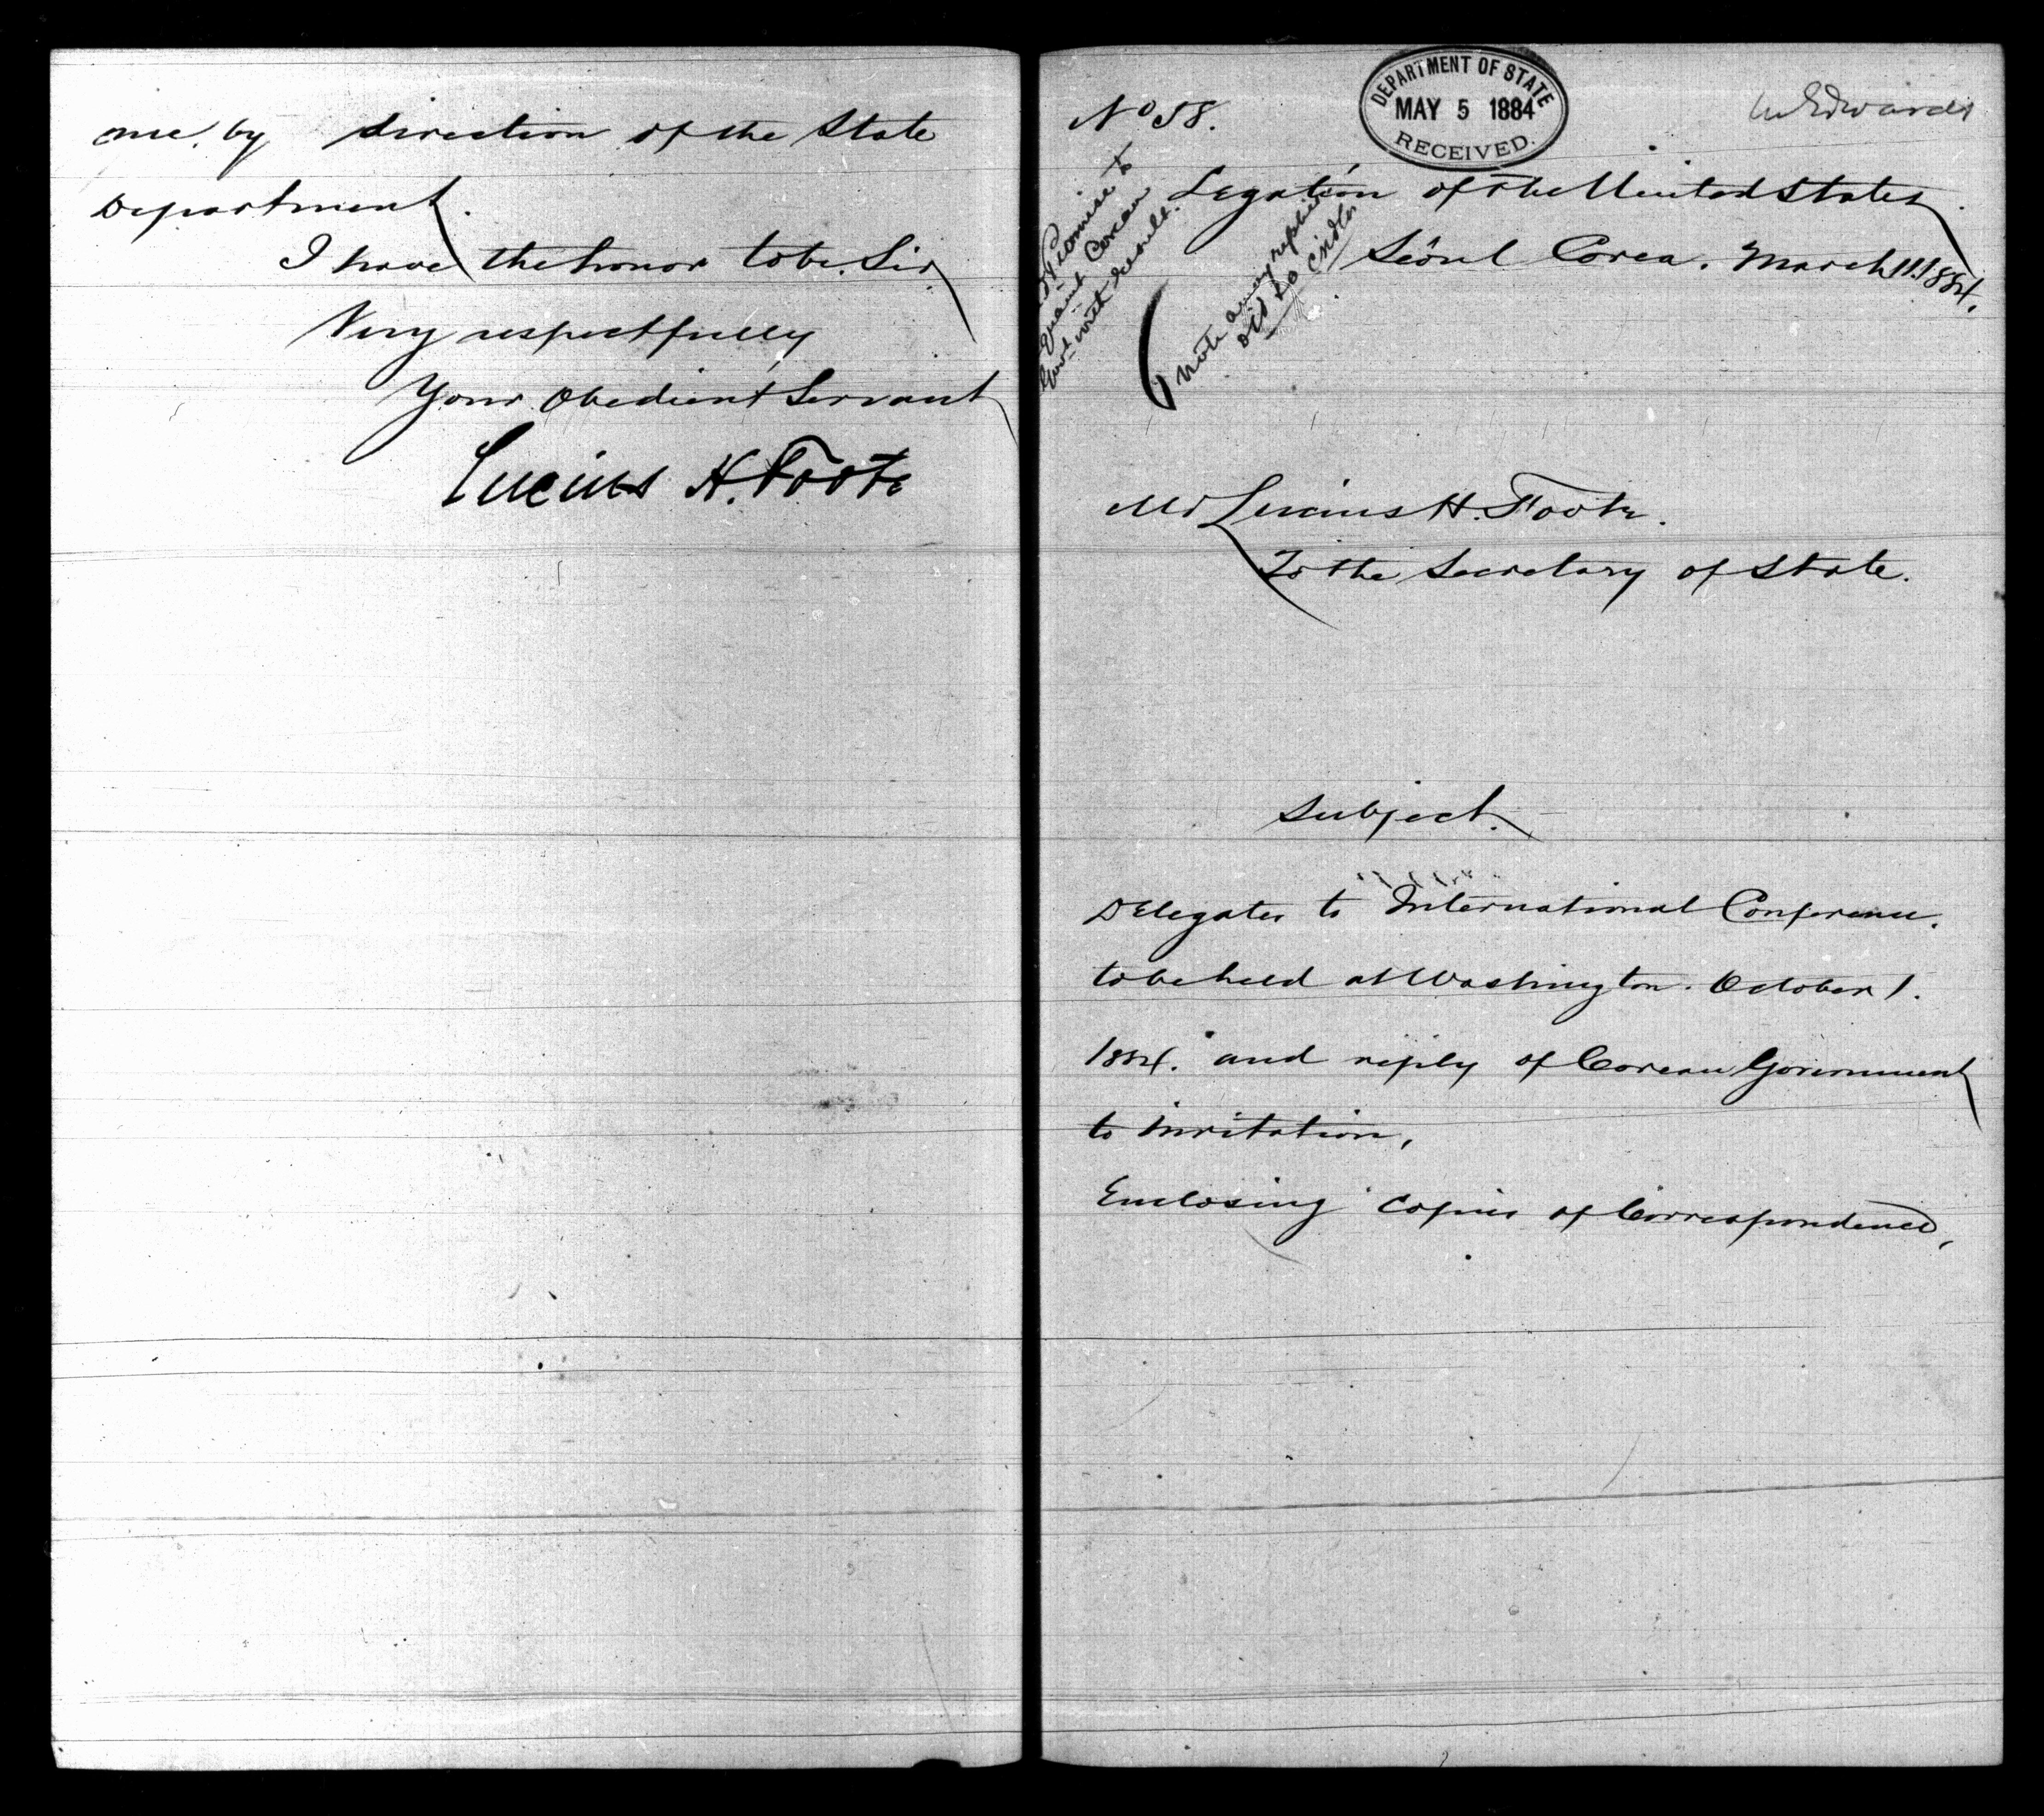 me, by direction of the State
Department.
I have the honor to be. Sir,
Very respectfully
Your Obedient Servant
Lucius H. Foote
No 58.
DEPARTMENT OF STATE
MAY 5 1884
RECEIVED.
Edwards
Legation of the United States.
Séoul Corea. March 11. 1884.
Promise to
Corean
Govt with result.
note
Mr Lucius H. Foote.
To the Secretary of State.
Subject.
Delegates to International Conference.
to be held at Washington. October 1.
1884. and reply of Corean Government
to invitation,
Enclosing copies of Correspondence,